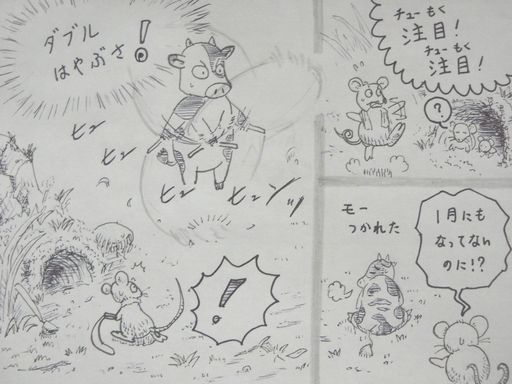 ダブル
はやぶさ!
ヒュー
ヒュー
ヒュー
ヒューンッ
!
チューもく
注目!
チューもく
注目!
?
モー
つかれた
1月にも
なってない
のに!?